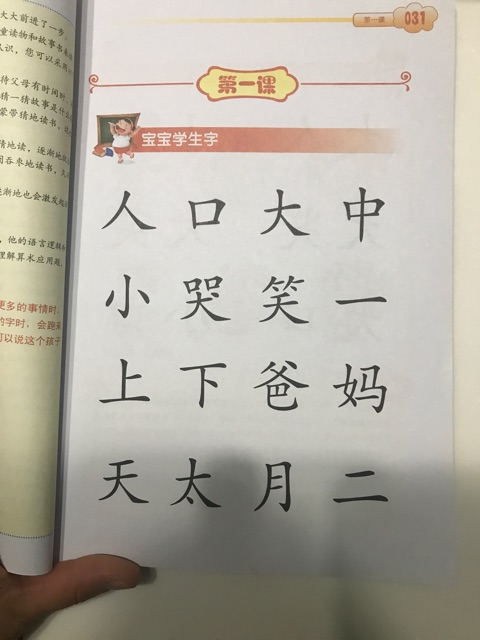 大大前进了一步。
童读物和故事书来
认识，您可以采用
待父母有时间时
猜一猜故事是什么
蒙带猜地读书，这
猜地读，逐渐地
囫吞枣地读书，久
逐渐地也会激发起
，他的语言逻辑
理解算术应用题
更多的事情时，
的字时，会跑来
可以说这个孩子
第一课
031
第一课
宝宝学生字
人 口 大 中
小 哭 笑 一
上 下 爸 妈
天 太 月 二